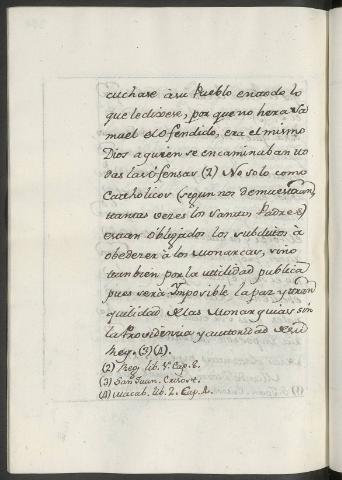 cuchase à su Pueblo en todo lo
que le dixese, por que no hera Sa
muel el Ofendido, era el mismo
Dios a quien se encaminaban to
das las Ofensas (2) No solo como
Catholicos (segun nos demuestran
tantas veces los Santos Padres)
estan obligados los subditos à
obedecer à los Monarcas, sino
tambien por la utilidad publica
pues serà Imposible la paz y tran
quilidad de las Monarquias sin
la Providencia y autoridad de su
Rey. (3) (4).
(2) Reg. lib. 1. Cap. 8.
(3) San Juan. Crisost.
(4) Macab. lib. 2. Cap. 4.